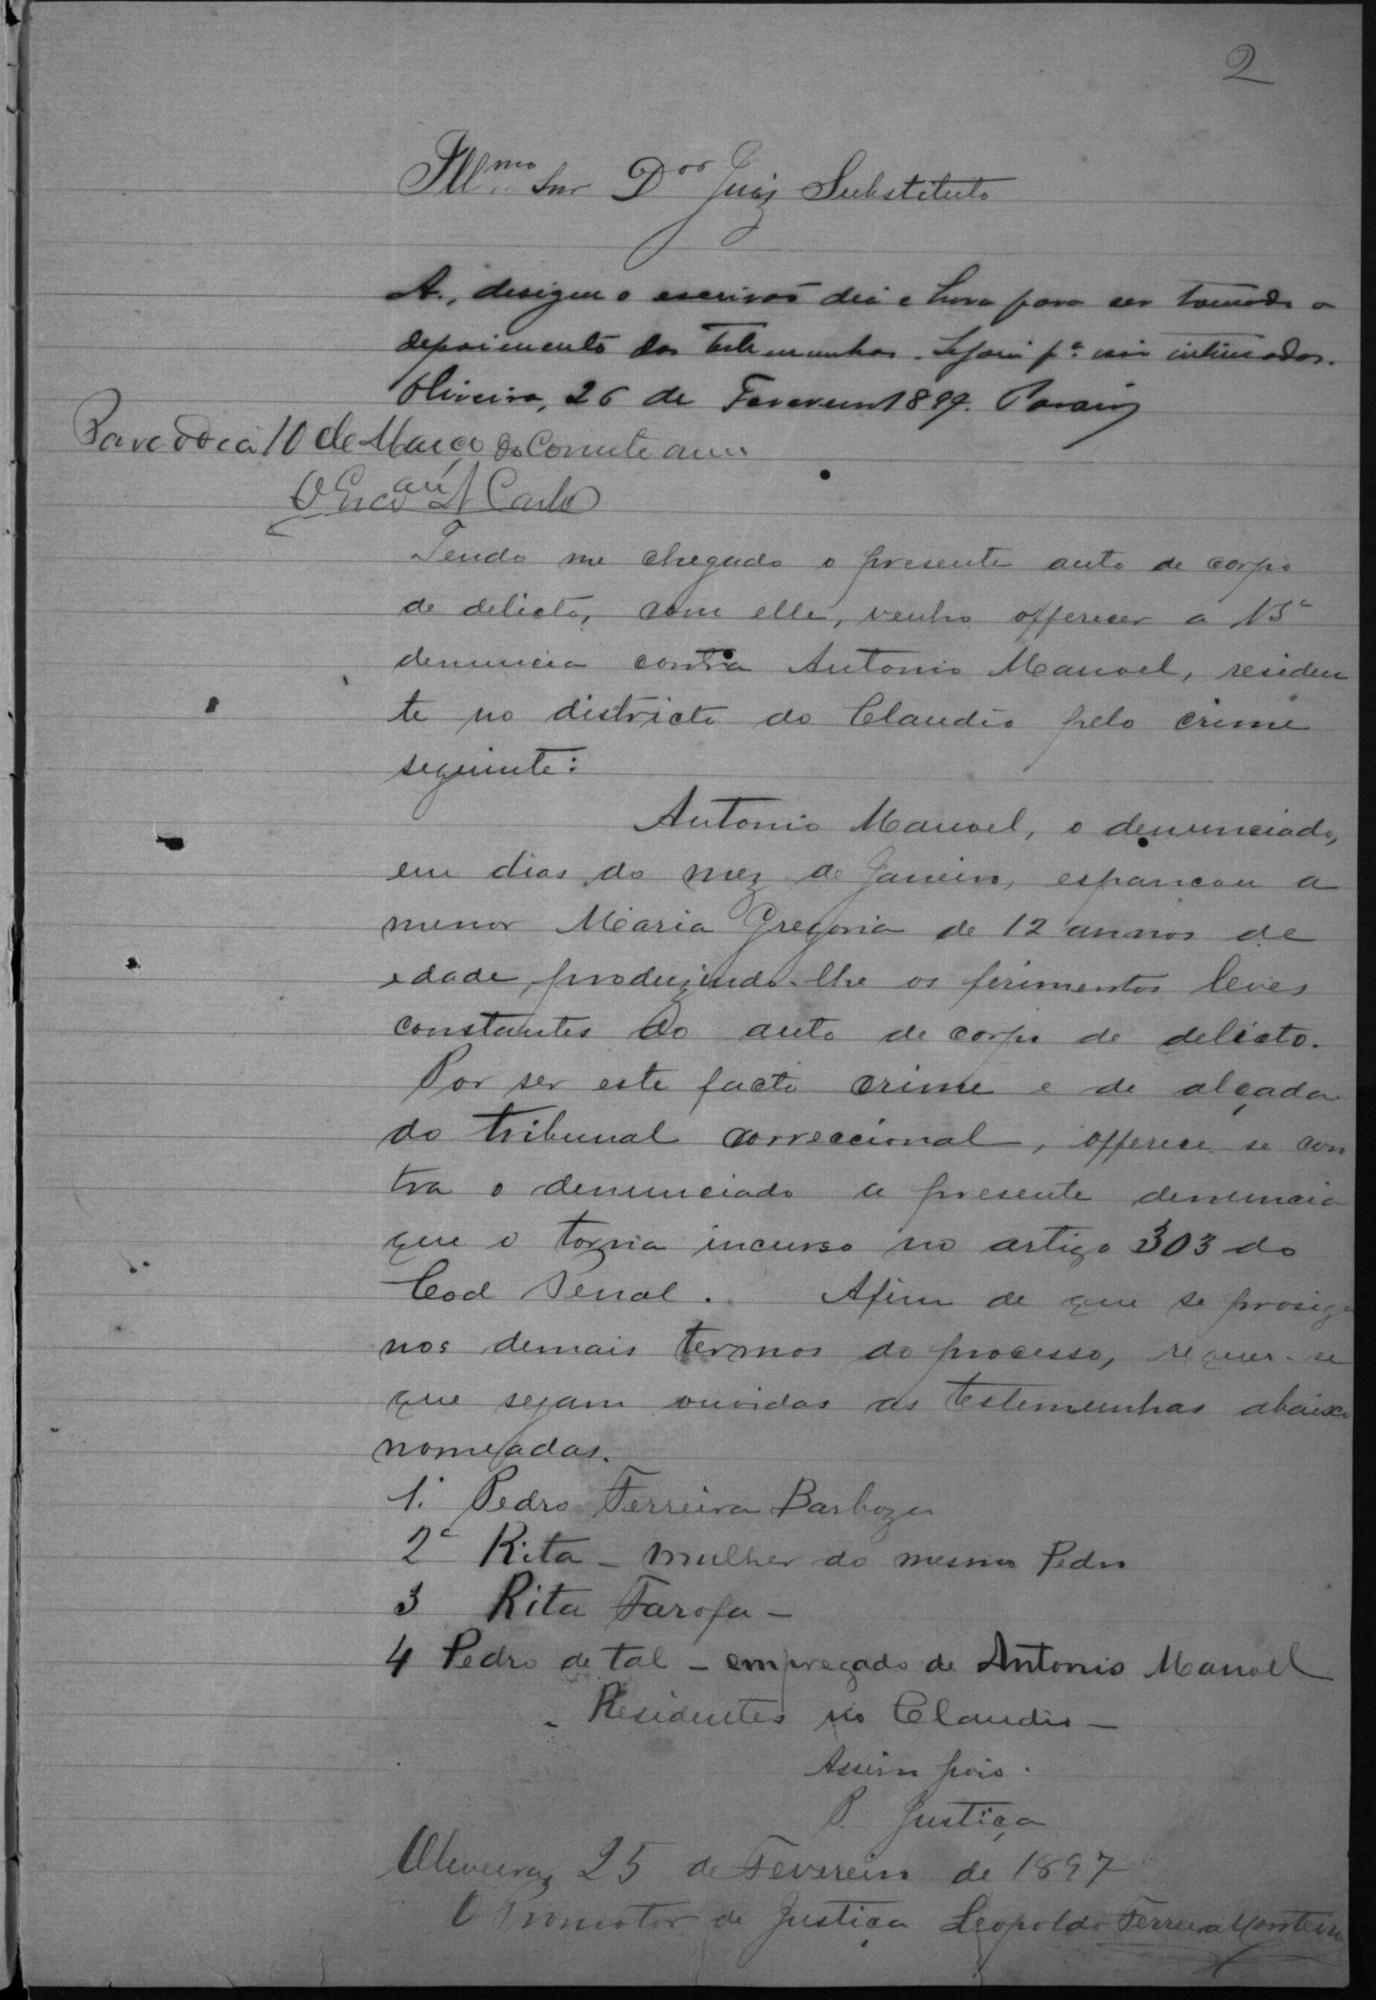 2
Illmo Snr Dor Juiz Substituto
A., designe o escrivão dia e hora para ser tomado o
depoimento das testemunhas. Sejam pa. isso intimados.
Oliveira, 26 de Fevereiro 1897.
Para o dia 10 de Março do corrente anno
O Escam
Tendo me chegado o presente auto de corpo
de delicto, com elle, venho offerecer a VSa
denuncia contra Antonio Manoel, residen
te no districto do Claudio pelo crime
seguinte:
Antonio Manoel, o denunciado,
em dias do mez de Janeiro, espancou a
menor Maria Gregoria de 12 annos de
edade, produzindo-lhe os ferimentos leves
constantes do auto de corpo de delicto.
Por ser este facto crime e de alçada
do tribunal correccional, offerece-se con
tra o denunciado a presente denuncia
que o torna incurso no artigo 303 do
Cod Penal. Afim de que se prosiga
nos demais termos do processo, requer-se
que sejam ouvidas as testemunhas abaixo
nomeadas.
1. Pedro Ferreira Barboza
2a Rita - mulher do mesmo Pedro
3 Rita Farofa -
4 Pedro de tal - empregado de Antonio Manoel
- Residentes no Claudio -
Assim pois.
P. Justiça
Oliveira, 25 de Fevereiro de 1897
O Promotor de Justiça Leopoldo Ferreira Monteiro